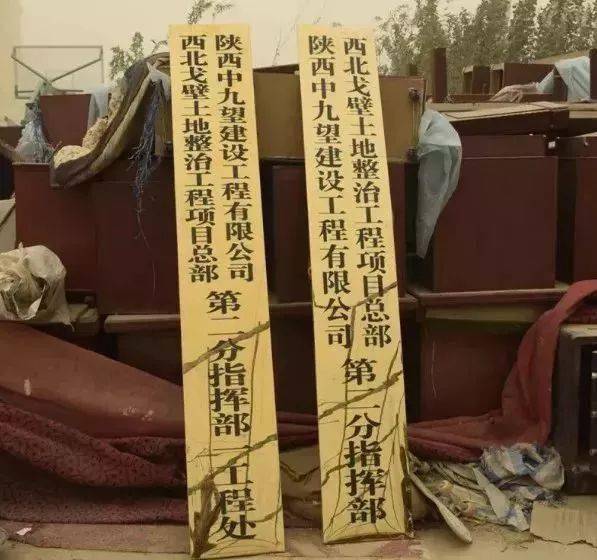 陕西中九望建设工程有限公司
西北戈壁土地整治工程项目总部
第二分指挥部
一工程处
陕西中九望建设工程有限公司
西北戈壁土地整治工程项目总部
第二分指挥部